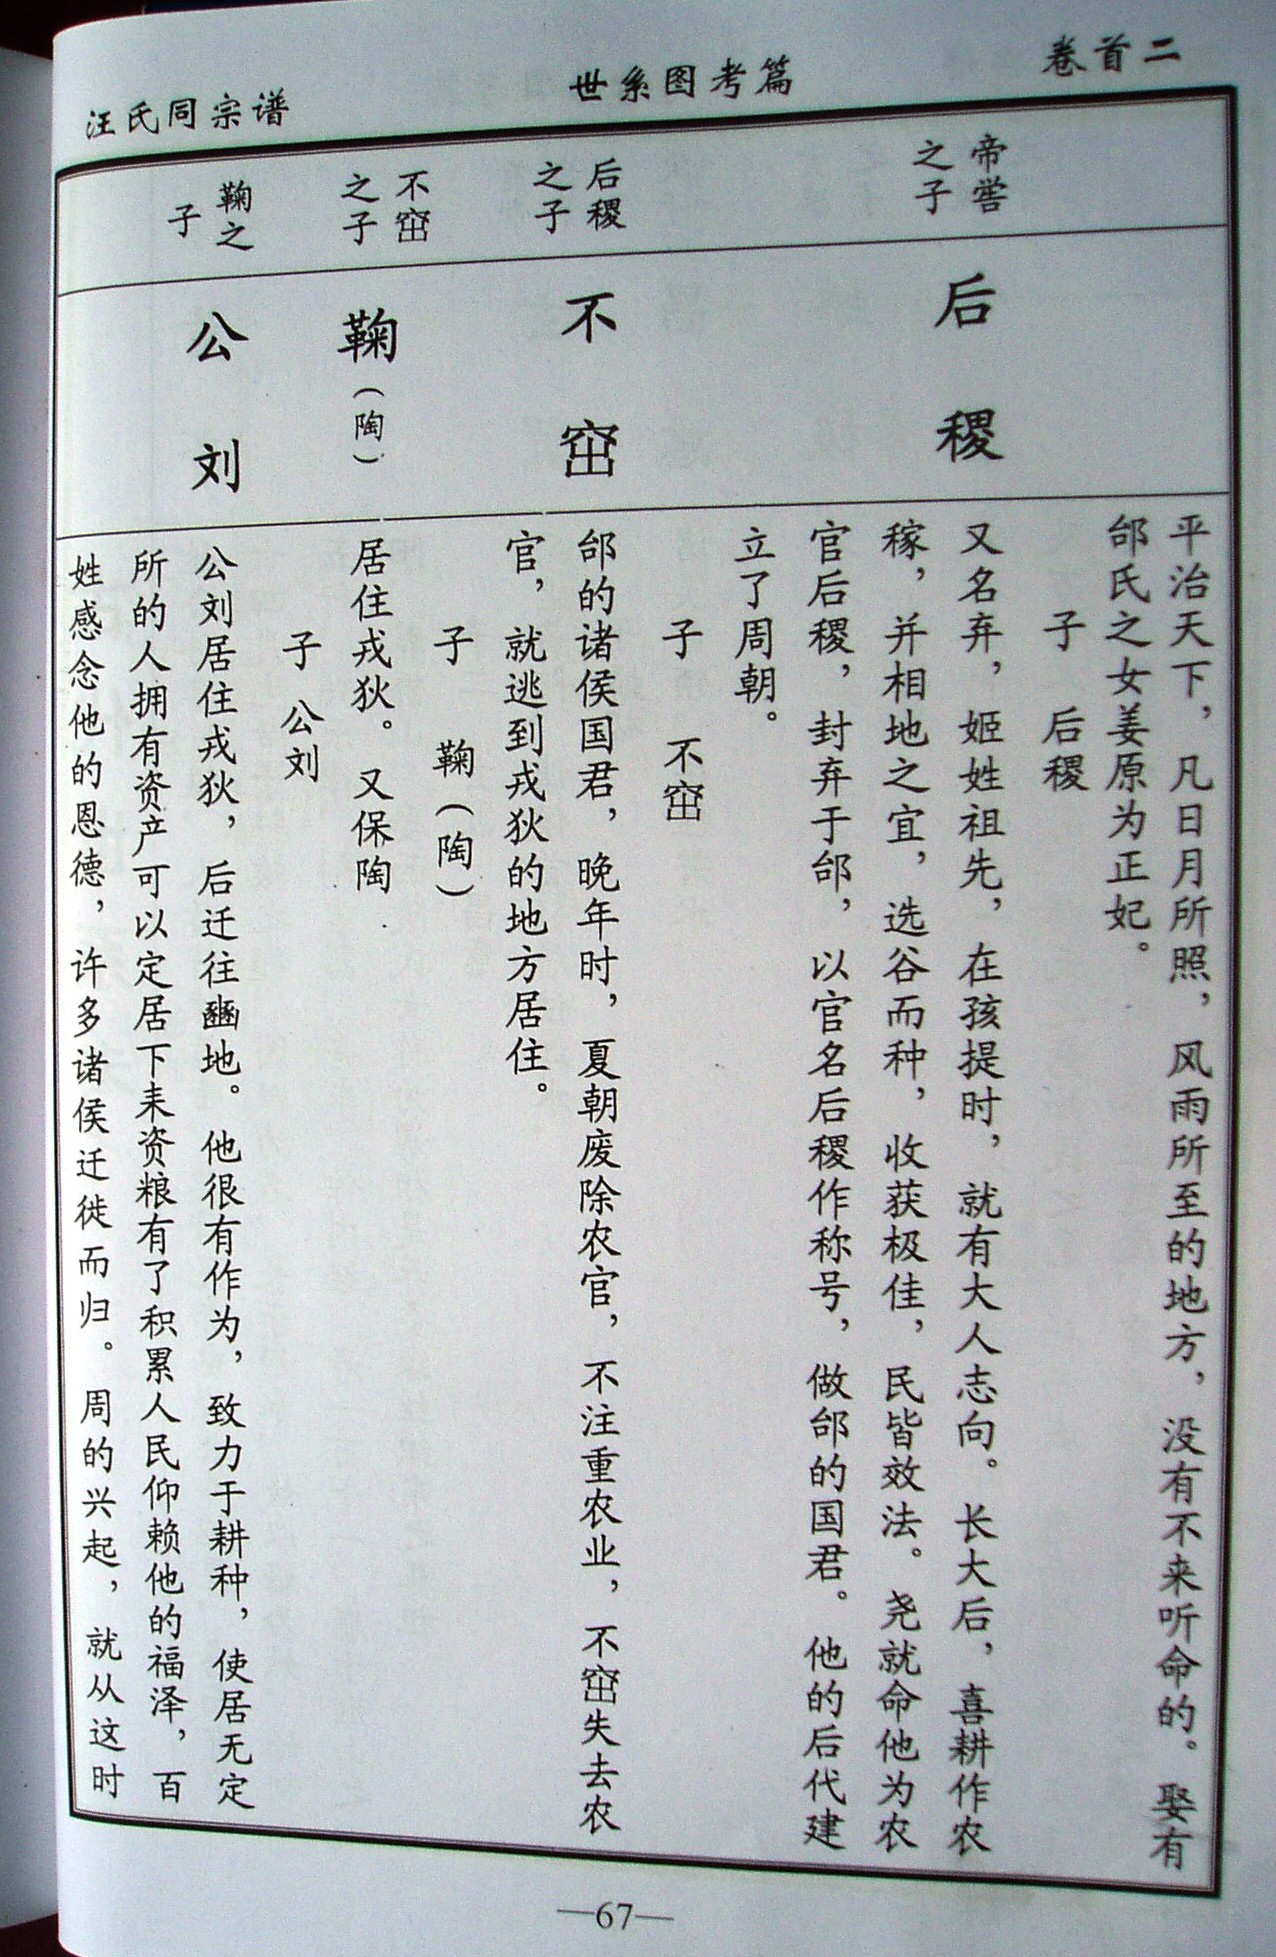 卷首二
世系图考篇
汪氏同宗谱
平治天下，凡日月所照，风雨所至的地方，没有不来听命的。娶有
邰氏之女姜原为正妃。
子 后稷
帝喾
之子
后稷
又名弃，姬姓祖先，在孩提时，就有大人志向。长大后，喜耕作农
稼，并相地之宜，选谷而种，收获极佳，民皆效法。尧就命他为农
官后稷，封弃于邰，以官名后稷作称号，做邰的国君。他的后代建
立了周朝。
子 不窋
后稷
之子
不窋
邰的诸侯国君，晚年时，夏朝废除农官，不注重农业，不窋失去农
官，就逃到戎狄的地方居住。
子 鞠（陶）
不窋
之子
鞠（陶）
居住戎狄。又保陶
子 公刘
鞠之
子
公刘
公刘居住戎狄，后迁往豳地。他很有作为，致力于耕种，使居无定
所的人拥有资产可以定居下来资粮有了积累人民仰赖他的福泽，百
姓感念他的恩德，许多诸侯迁徙而归。周的兴起，就从这时
—67—